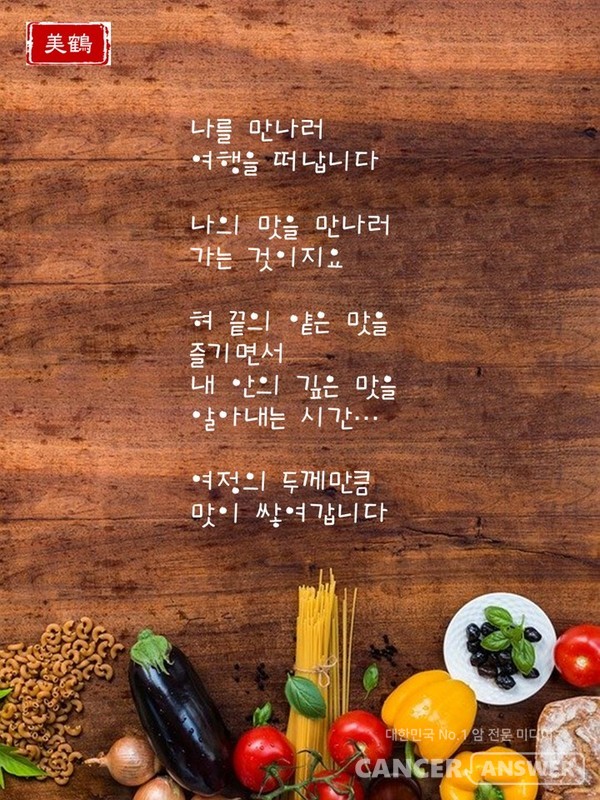 美鶴
나를 만나러
여행을 떠납니다
나의 맛을 만나러
가는 것이지요
혀 끝의 얕은 맛을
즐기면서
내 안의 깊은 맛을
알아내는 시간…
여정의 두께만큼
맛이 쌓여갑니다
대한민국 No.1 암 전문 미디어
CANCER ANSWER